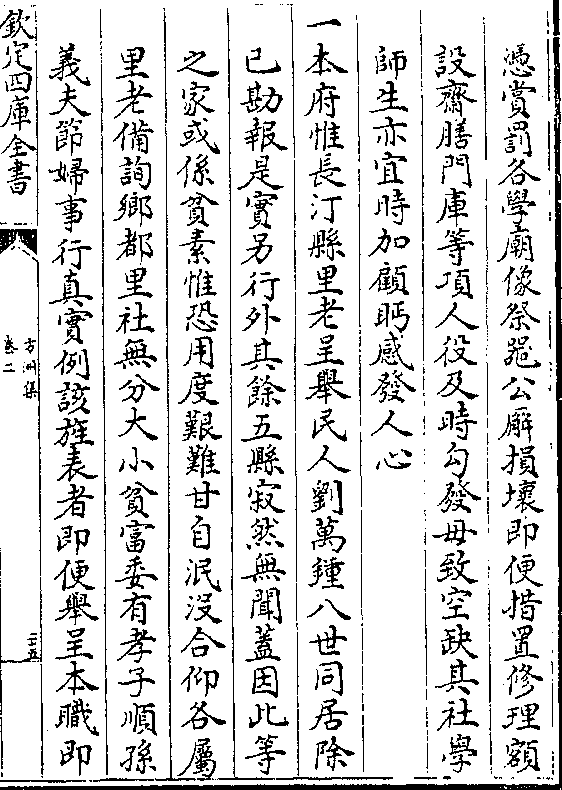 憑賞罰各學廟像祭噐公廨損壞即便措置修理額
設齋膳門庫等項人役及時勾發毋致空缺其社學
師生亦宜時加顧眄感發人心
一本府惟長汀縣里老呈舉民人劉萬鍾八世同居除
已勘報是實另行外其餘五縣寂然無聞蓋因此等
之家或係貧素惟恐用度艱難甘自泯没合仰各屬
里老備詢鄉都里社無分大小貧富委有孝子順孫
義夫節婦事行真實例該旌表者即便舉呈本職即
欽定四庫全書
方洲集
卷二
二十五